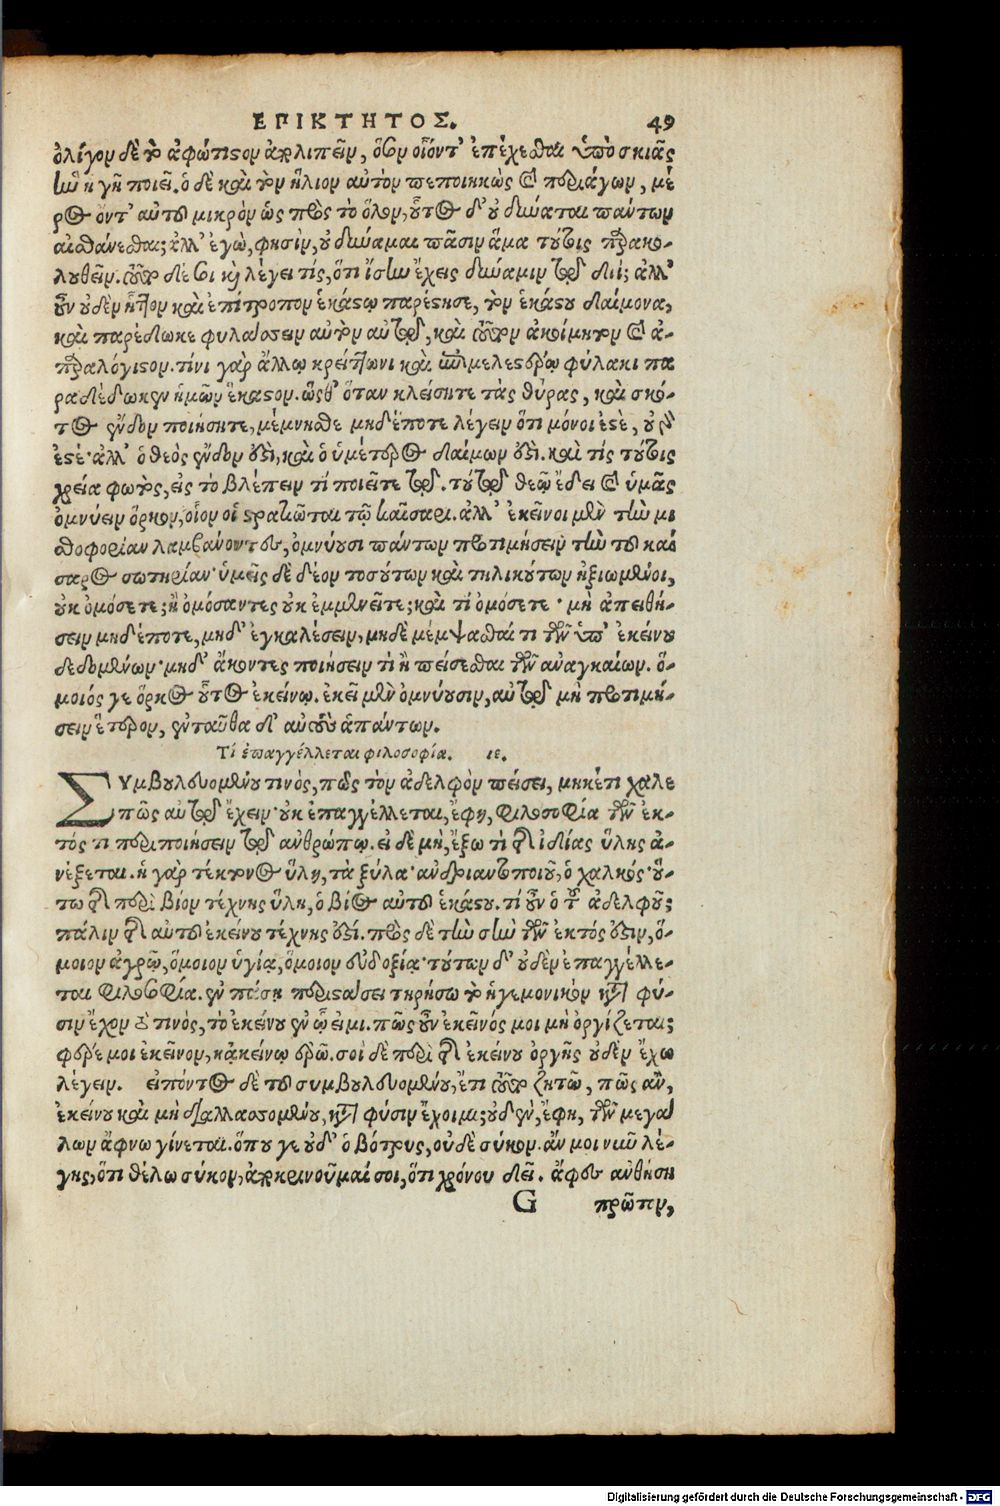 ΕΠΙΚΤΗΤΟΣ. 49
ὀλίγον δὲ τὸ ἀφώτιστον ἀπολιπεῖν, ὅσον οἷόντ' ἐπέχεσθαι ὑπὸ σκιᾶς
ἣν ἡ γῆ ποιεῖ. ὁ δὲ καὶ τὸν ἥλιον αὐτὸν πεποιηκὼς καὶ περιάγων, μέ-
ρος ὄντ' αὐτοῦ μικρὸν ὡς πρὸς τὸ ὅλον, οὗτος δ' οὐ δύναται πάντων
αἰσθάνεσθαι; ἀλλ' ἐγὼ, φησὶν, οὐ δύναμαι πᾶσιν ἅμα τούτοις παρακο-
λουθεῖν. τοῦτο δέ σοι καὶ λέγει τίς, ὅτι ἴσην ἔχεις δύναμιν τῷ διί; ἀλλ'
οὖν οὐδὲν ἧττον καὶ ἐπίτροπον ἑκάστῳ παρέστησε, τὸν ἑκάστου δαίμονα,
καὶ παρέδωκε φυλάσσειν αὐτὸν αὐτῷ, καὶ τοῦτον ἀκοίμητον καὶ ἀ-
παραλόγιστον. τίνι γὰρ ἄλλῳ κρείττωνι καὶ ἐπιμελεστέρῳ φύλακι πα
ραδέδωκεν ἡμῶν ἕκαστον. ὥσθ' ὅταν κλείσητε τὰς θύρας, καὶ σκό-
τος ἔνδον ποιήσητε, μέμνησθε μηδέποτε λέγειν ὅτι μόνοι ἐστὲ, οὐ γὰρ
ἐστέ· ἀλλ' ὁ θεὸς ἔνδον ἐστὶ, καὶ ὁ ὑμέτερος δαίμων ἐστί. καὶ τίς τούτοις
χρεία φωτὸς, εἰς τὸ βλέπειν τί ποιεῖτε τῷ. τούτῳ θεῷ ἔδει καὶ ὑμᾶς
ὀμνύειν ὅρκον, οἷον οἱ στρατιῶται τῷ καίσαρι. ἀλλ' ἐκεῖνοι μὲν τὴν μι
σθοφορίαν λαμβάνοντες, ὀμνύουσι πάντων προτιμήσειν τὴν τοῦ καί
σαρος σωτηρίαν· ὑμεῖς δὲ δέον τοσούτων καὶ τηλικούτων ἠξιωμένοι,
οὐκ ὀμόσετε; ἢ ὀμόσαντες οὐκ ἐμμενεῖτε; καὶ τί ὀμόσετε· μὴ ἀπειθή-
σειν μηδέποτε, μηδ' ἐγκαλέσειν, μηδὲ μέμψασθαί τι τῶν ὑπ' ἐκείνου
δεδομένων· μηδ' ἄκοντες ποιήσειν τὶ ἢ πείσεσθαι τῶν ἀναγκαίων. ὅ-
μοιός γε ὅρκος οὗτος ἐκείνῳ. ἐκεῖ μὲν ὀμνύουσιν, αὐτοῦ μὴ προτιμή-
σειν ἕτερον, ἐνταῦθα δ' αὐτοὺς ἁπάντων.
Τί ἐπαγγέλλεται φιλοσοφία. ιε.
Συμβουλευομένου τινὸς, πῶς τὸν ἀδελφὸν πείσει, μηκέτι χαλε
πῶς αὐτῷ ἔχειν· οὐκ ἐπαγγέλλεται, ἔφη, φιλοσοφία τῶν ἐκ-
τός τι περιποιήσειν τῷ ἀνθρώπῳ. εἰ δὲ μὴ, ἔξω τὶ τῆς ἰδίας ὕλης ἀ-
νέξεται. ἡ γὰρ τέκτονος ὕλη, τὰ ξύλα· ἀνδριαντοποιοῦ, ὁ χαλκός· οὕ-
τω τῆς περὶ βίον τέχνης ὕλη, ὁ βίος αὐτοῦ ἑκάστου. τί οὖν ὁ τοῦ ἀδελφοῦ;
πάλιν τῆς αὐτοῦ ἐκείνου τέχνης ἐστί. πρὸς δὲ τὴν σὴν τῶν ἐκτός ἐστιν, ὅ-
μοιον ἀγρῷ, ὅμοιον ὑγίᾳ, ὅμοιον εὐδοξίᾳ· τούτων δ' οὐδὲν ἐπαγγέλλε-
ται φιλοσοφία. ἐν πάσῃ περιστάσει τηρήσω τὸ ἡγεμονικὸν κατὰ φύ-
σιν ἔχον τὸ τινὸς, τὸ ἐκείνου ἐν ᾧ εἰμι. πῶς οὖν ἐκεῖνός μοι μὴ ὀργίζεται;
φέρε μοι ἐκεῖνον, κἀκείνῳ ἐρῶ. σοὶ δὲ περὶ τῆς ἐκείνου ὀργῆς οὐδὲν ἔχω
λέγειν. εἰπόντος δὲ τοῦ συμβουλευομένου, ἔτι τοῦτο ζητῶ, πῶς ἂν,
ἐκείνου καὶ μὴ διαλλασσομένου, κατὰ φύσιν ἔχοιμι; οὐδὲν, ἔφη, τῶν μεγά
λων ἄφνω γίνεται. ὅπου γε οὐδ' ὁ βότρυς, οὐδὲ σύκον. ἄν μοι νῦν λέ-
γῃς, ὅτι θέλω σύκον, ἀποκρινοῦμαί σοι, ὅτι χρόνου δεῖ. ἄφες ἀνθήσῃ
G πρῶτον,
Digitalisierung gefördert durch die Deutsche Forschungsgemeinschaft - DFG